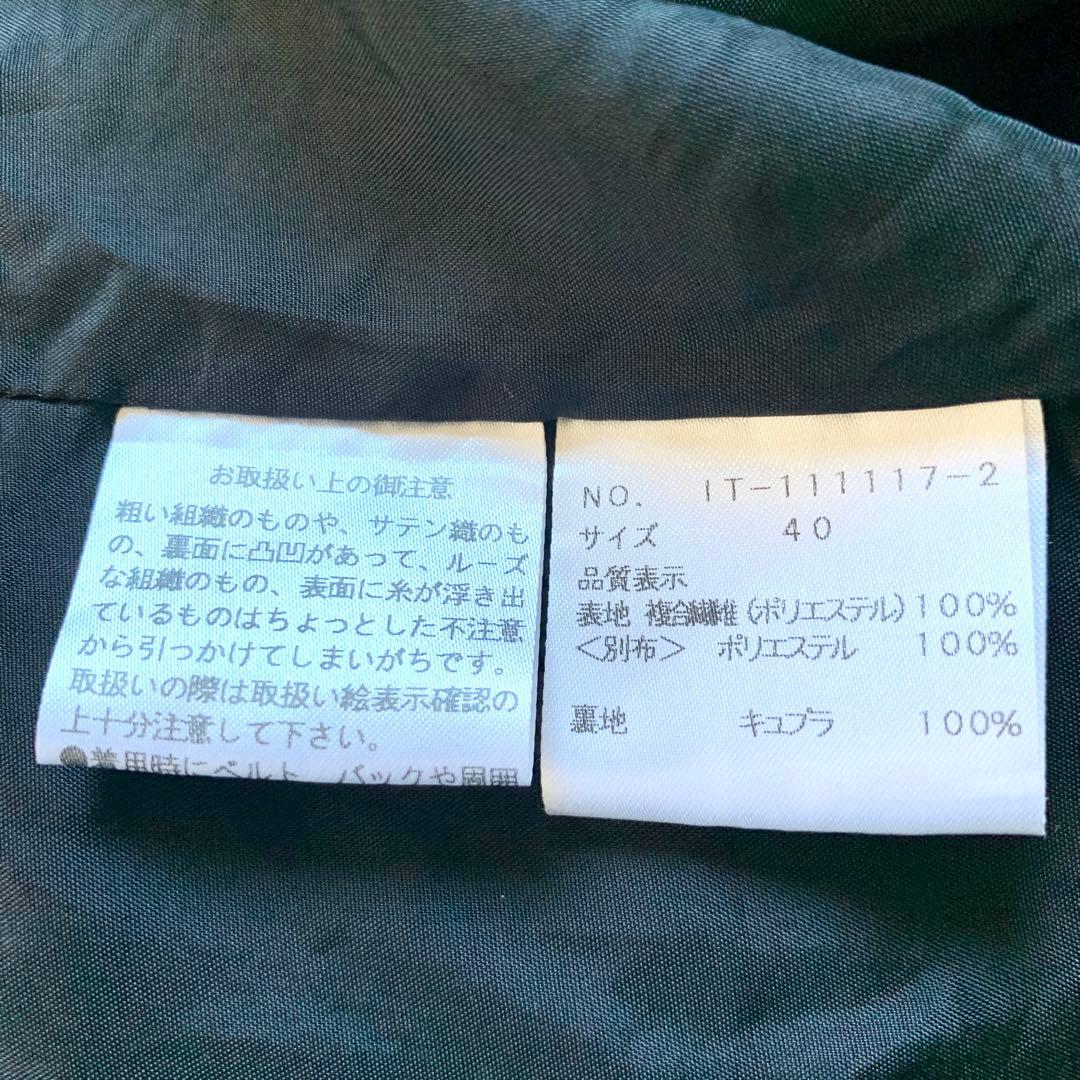 お取扱い上の御注意
粗い組織のものや、サテン織のも
の、裏面に凸凹があって、ルーズ
な組織のもの、表面に糸が浮き出
ているものはちょっとした不注意
から引っかけてしまいがちです。
取扱いの際は取扱い絵表示確認の
上十分注意して下さい。
●着用時にベルト、バックや周囲
NO. IT-111117-2
サイズ 40
品質表示
表地 複合繊維(ポリエステル)100%
<別布> ポリエステル 100%
裏地 キュプラ 100%